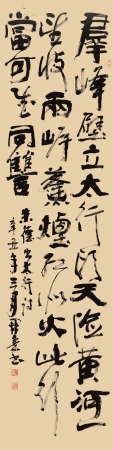 羣峰壁立太行頭天險黄河一
望收兩岸烽煙紅似火此行
當可慰同讐
朱德出太行詩
辛丑年三月書